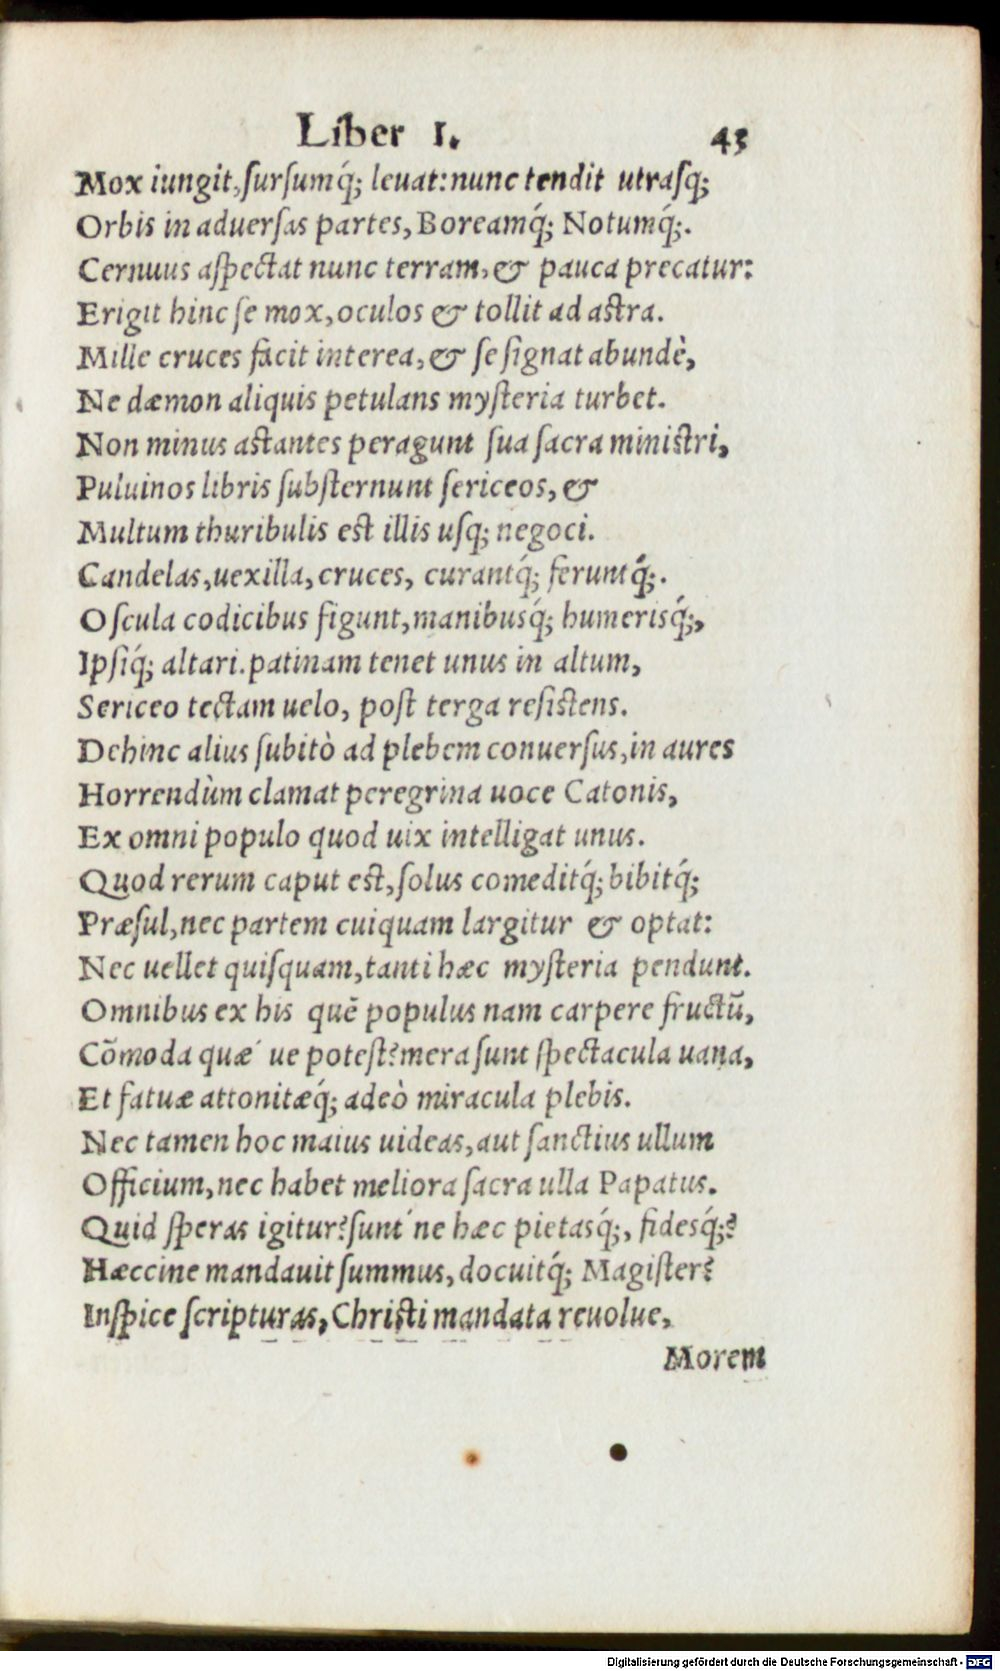 Liber I. 43
Mox iungit, ſurſumq́; leuat: nunc tendit utraſq;
Orbis in aduerſas partes, Boreamq́; Notumq́;.
Cernuus aſpectat nunc terram, & pauca precatur:
Erigit hinc ſe mox, oculos & tollit ad aſtra.
Mille cruces facit interea, & ſe ſignat abundè,
Ne dæmon aliquis petulans myſteria turbet.
Non minus aſtantes peragunt ſua ſacra miniſtri,
Puluinos libris ſubſternunt ſericeos, &
Multum thuribulis eſt illis uſq; negoci.
Candelas, uexilla, cruces, curantq́; feruntq́;.
Oſcula codicibus figunt, manibusq́; humerisq́;,
Ipſiq́; altari. patinam tenet unus in altum,
Sericeo tectam uelo, poſt terga reſiſtens.
Dehinc alius ſubitò ad plebem conuerſus, in aures
Horrendùm clamat peregrina uoce Catonis,
Ex omni populo quod uix intelligat unus.
Quod rerum caput eſt, ſolus comeditq́; bibitq́;
Præſul, nec partem cuiquam largitur & optat:
Nec uellet quiſquam, tanti hæc myſteria pendunt.
Omnibus ex his quẽ populus nam carpere fructũ,
Cõmoda quæ ́ue poteſt? mera ſunt ſpectacula uana,
Et fatuæ attonitæq́; adeò miracula plebis.
Nec tamen hoc maius uideas, aut ſanctius ullum
Officium, nec habet meliora ſacra ulla Papatus.
Quid ſperas igitur? ſunt ́ne hæc pietasq́;, fidesq́;?
Hæccine mandauit ſummus, docuitq́; Magiſter?
Inſpice ſcripturas, Chriſti mandata reuolue,
Morem
Digitalisierung gefördert durch die Deutsche Forschungsgemeinschaft - DFG